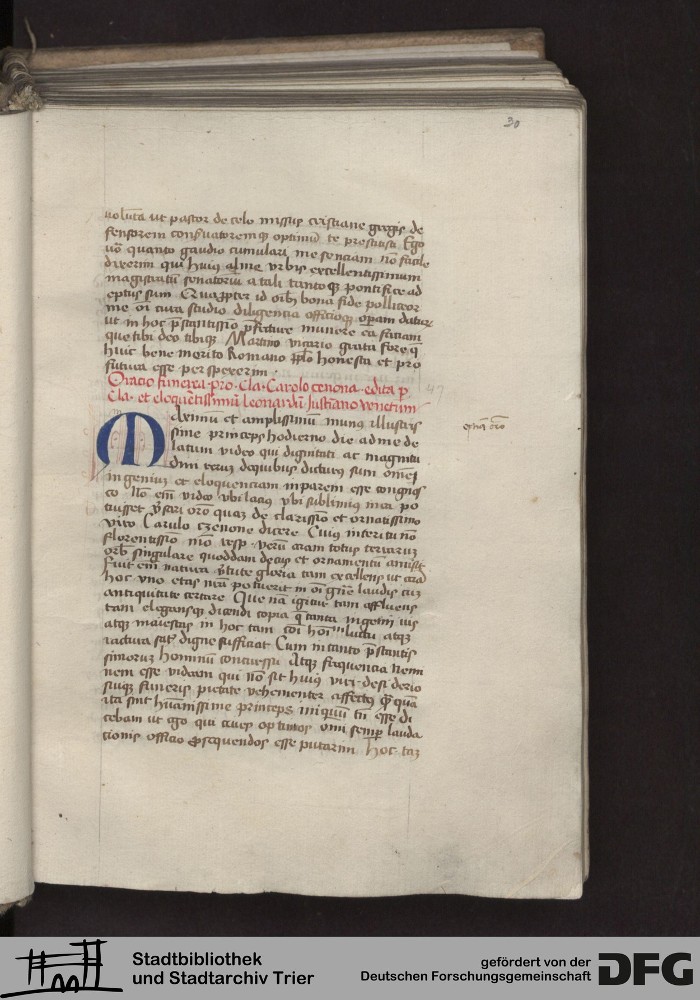 30
volunta ut pastor de celo missus cristiane gregis de
fensorem conservatoremq optimu te prestitisti Ego
vo quanto gaudio cumulari me senciam no facile
dixerim qui huius alme urbis excellentissimum
magistratu senatoriu a tali tantoq pontifice ad
eptus sum Quappter id oib bona fide polliceor
me oi cura studio diligencia officioq operam daturu
ut in hoc pstantissio pfecture munere ea faciam
que tibi deo tibiq Martino vicario grata fore q
huic bene merito Romano pplo honesta et pro
futura esse perspexerim .
Oracio funebra pro . Cla . Carolo cenona . edita p
Cla . et eloquetissimu leonardu Iustiano venetum
47
Maximu et amplissimu munus illustris
sime princeps hodierno die ad me de
latum video qui dignitati ac magnitu
dini rerum de quibus dicturus sum omei
ingenius et eloquenciam inparem esse congnos
co No em video ubi lacius ubi sublimius mea po
tuisset vsari oro quaz de clarissio et ornatissimo
viro Carulo czenone dicere Cuius interitu no
florentissio mo resp . veru eciam totus terraruz
orb singulare quoddam decus et ornamentu amisit
Fuit em natura vtute gloria tam excellens ut cu ad
hoc uno etas nra potuerit in oi gne laudis cuz
antiquitate certare Que na igitur tam affluens
tam elegansq dicendi copia q tanta ingenii vis
atq maiestas in hoc tam coi hoim luctu atq
iactura satis digne sufficiat Cum in tanto pstantis
simoruz hominu concurssu Atq frequencia nemi
nem esse videam qui no sit huius viri desiderio
suiq funeris pietate vehementer affectus q qua
ita sint humanissime princeps iniquu tn esse di
cebam ut ego qui cives optimos omi semp lauda
cionis officio psequendos esse putarim Hoc taz
Stadtbibliothek
und Stadtarchiv Trier
gefördert von der
Deutschen Forschungsgemeinschaft
DFG